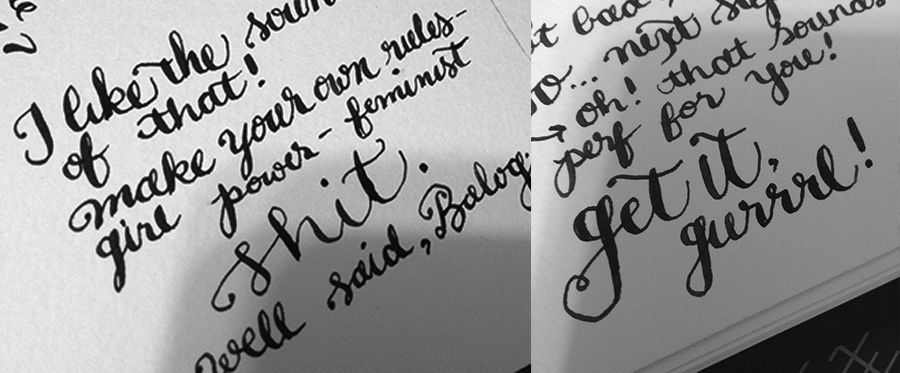 I like the soun
of that!
make your own rules-
girl power- feminist
shit.
well said, Balog
t bad,
o... next
→ oh! that sounds
perf for you!
get it,
gurrrl!